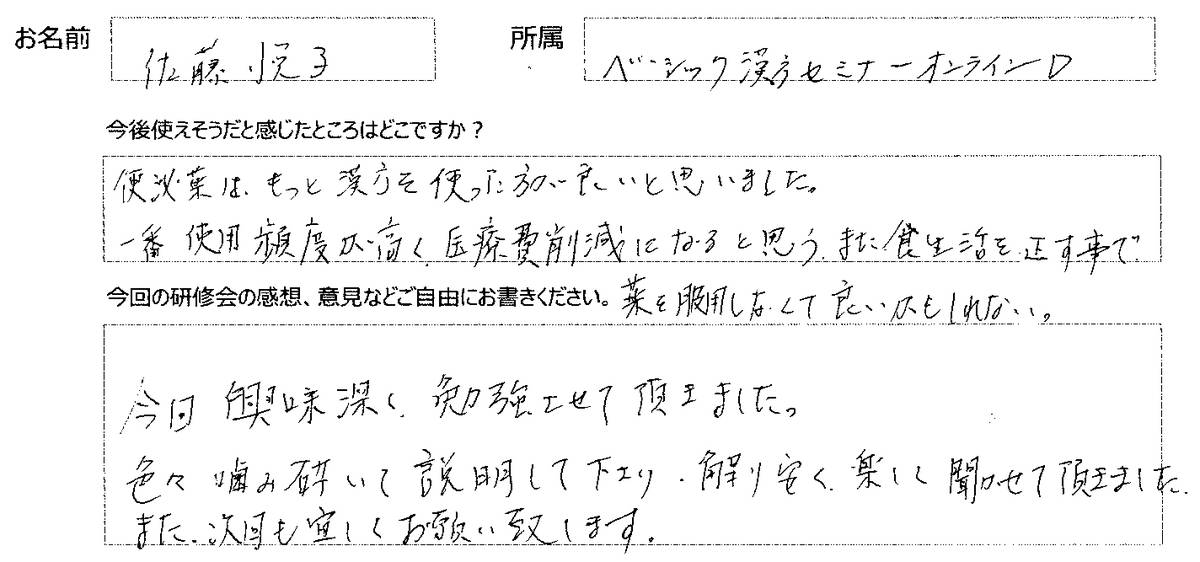 お名前 佐藤悦子 所属 ベーシック漢方セミナーオンラインD
今後使えそうだと感じたところはどこですか？
便泌薬は、もっと漢方を使った方が良いと思いました。
一番使用頻度が高く、医療費削減になると思う、また食生活を正す事で
今回の研修会の感想、意見などご自由にお書きください。 薬を服用しなくて良いかもしれない。
今回興味深く、勉強させて頂きました。
色々噛み砕いて説明して下さり、解り安く、楽しく聞かせて頂きました。
また、次回も宜しくお願い致します。